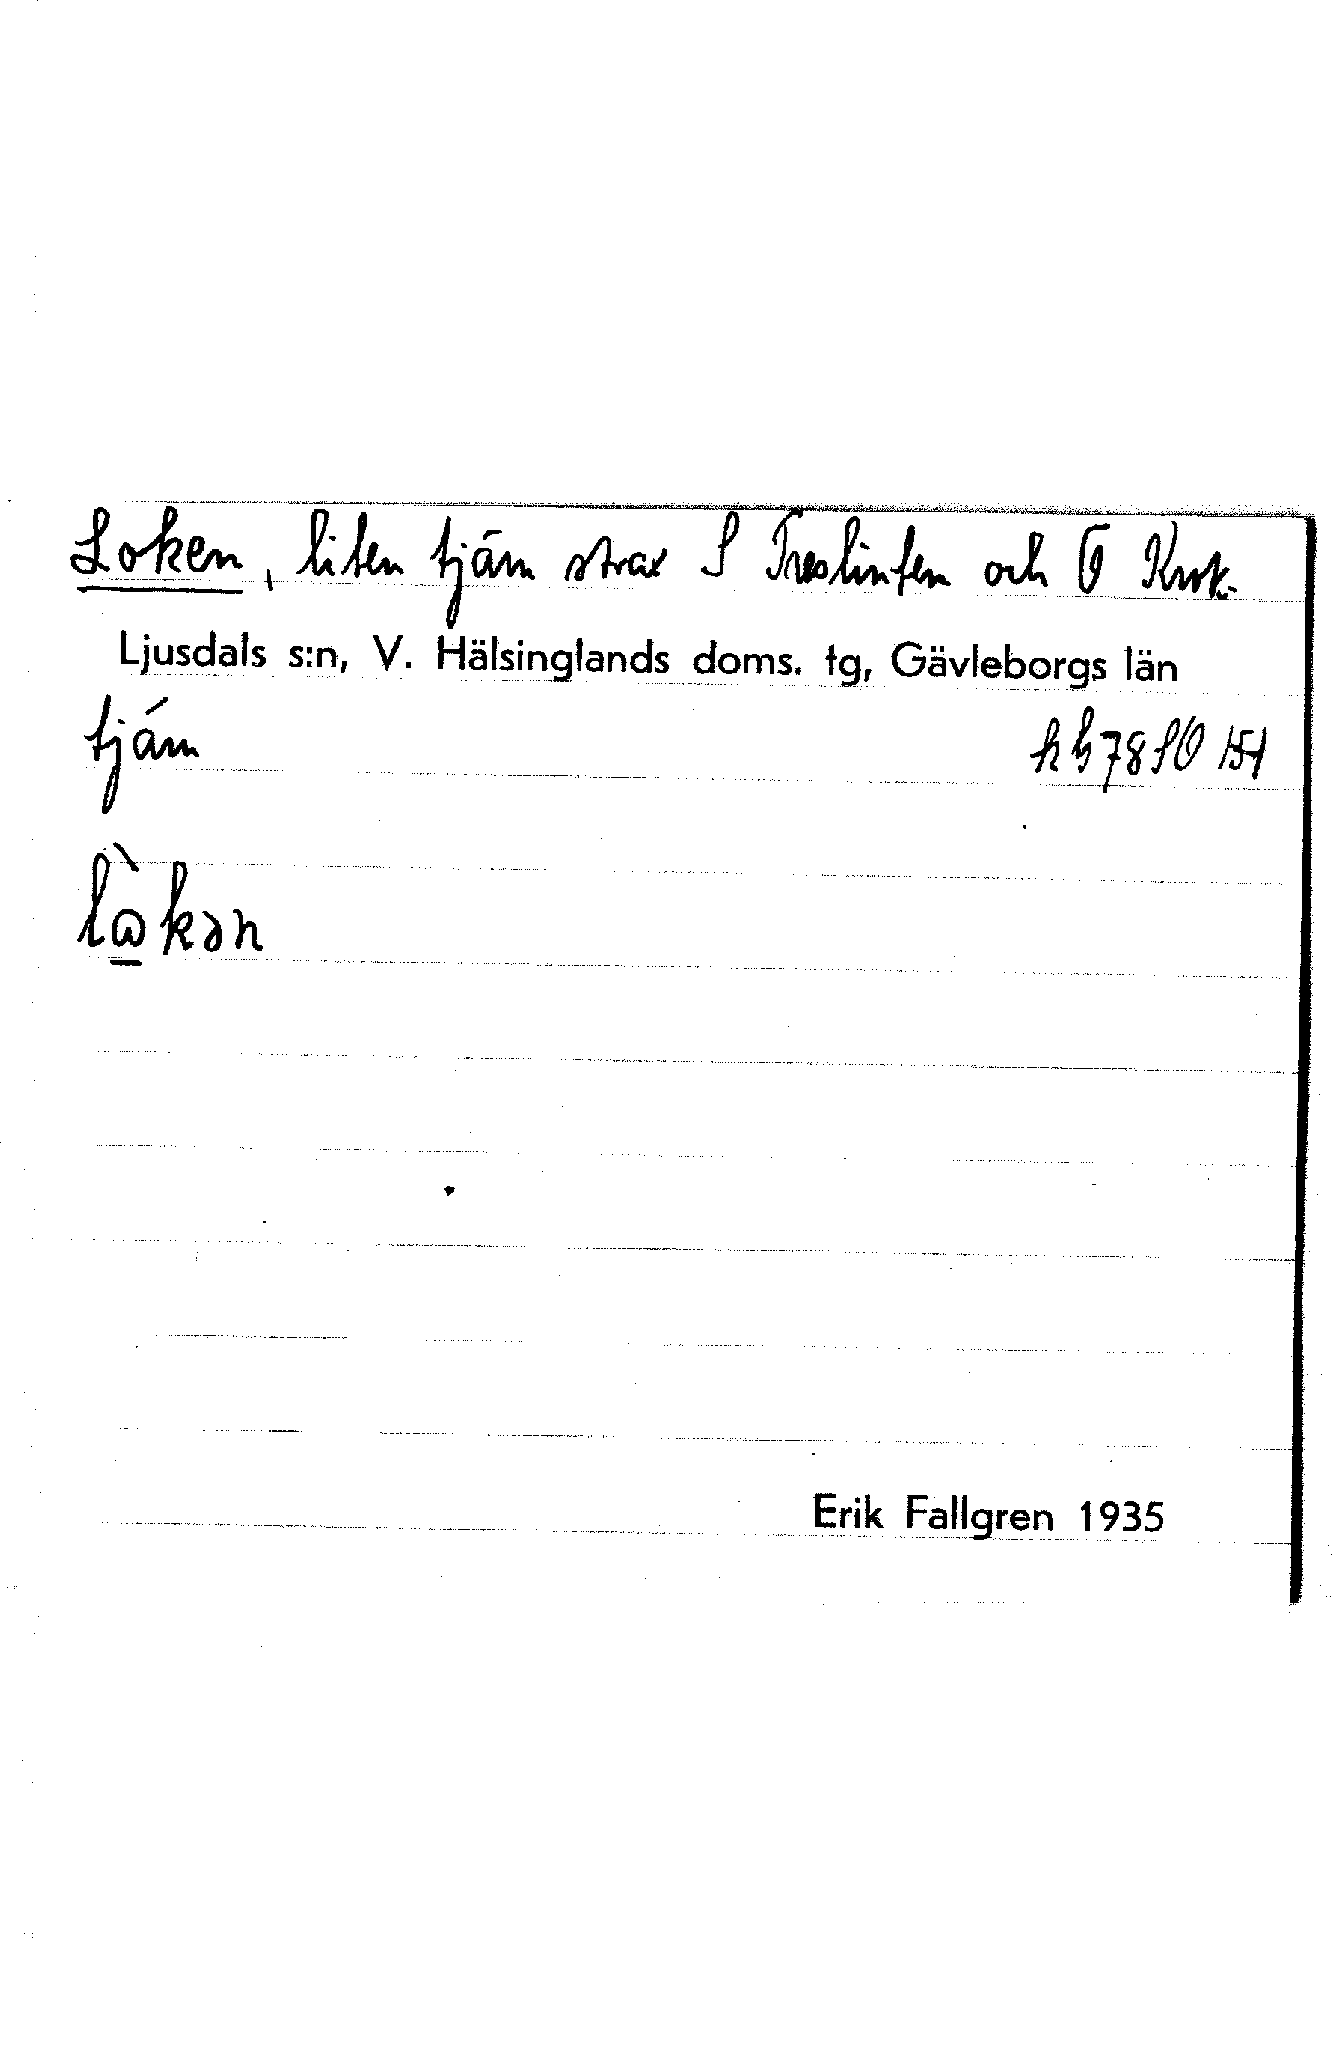 Loken, liten tjärn strax S Treslinten och Ö Krok.
Ljusdals s:n, V. Hälsinglands doms. tg, Gävleborgs län
tjärn
làkən
Erik Fallgren 1935